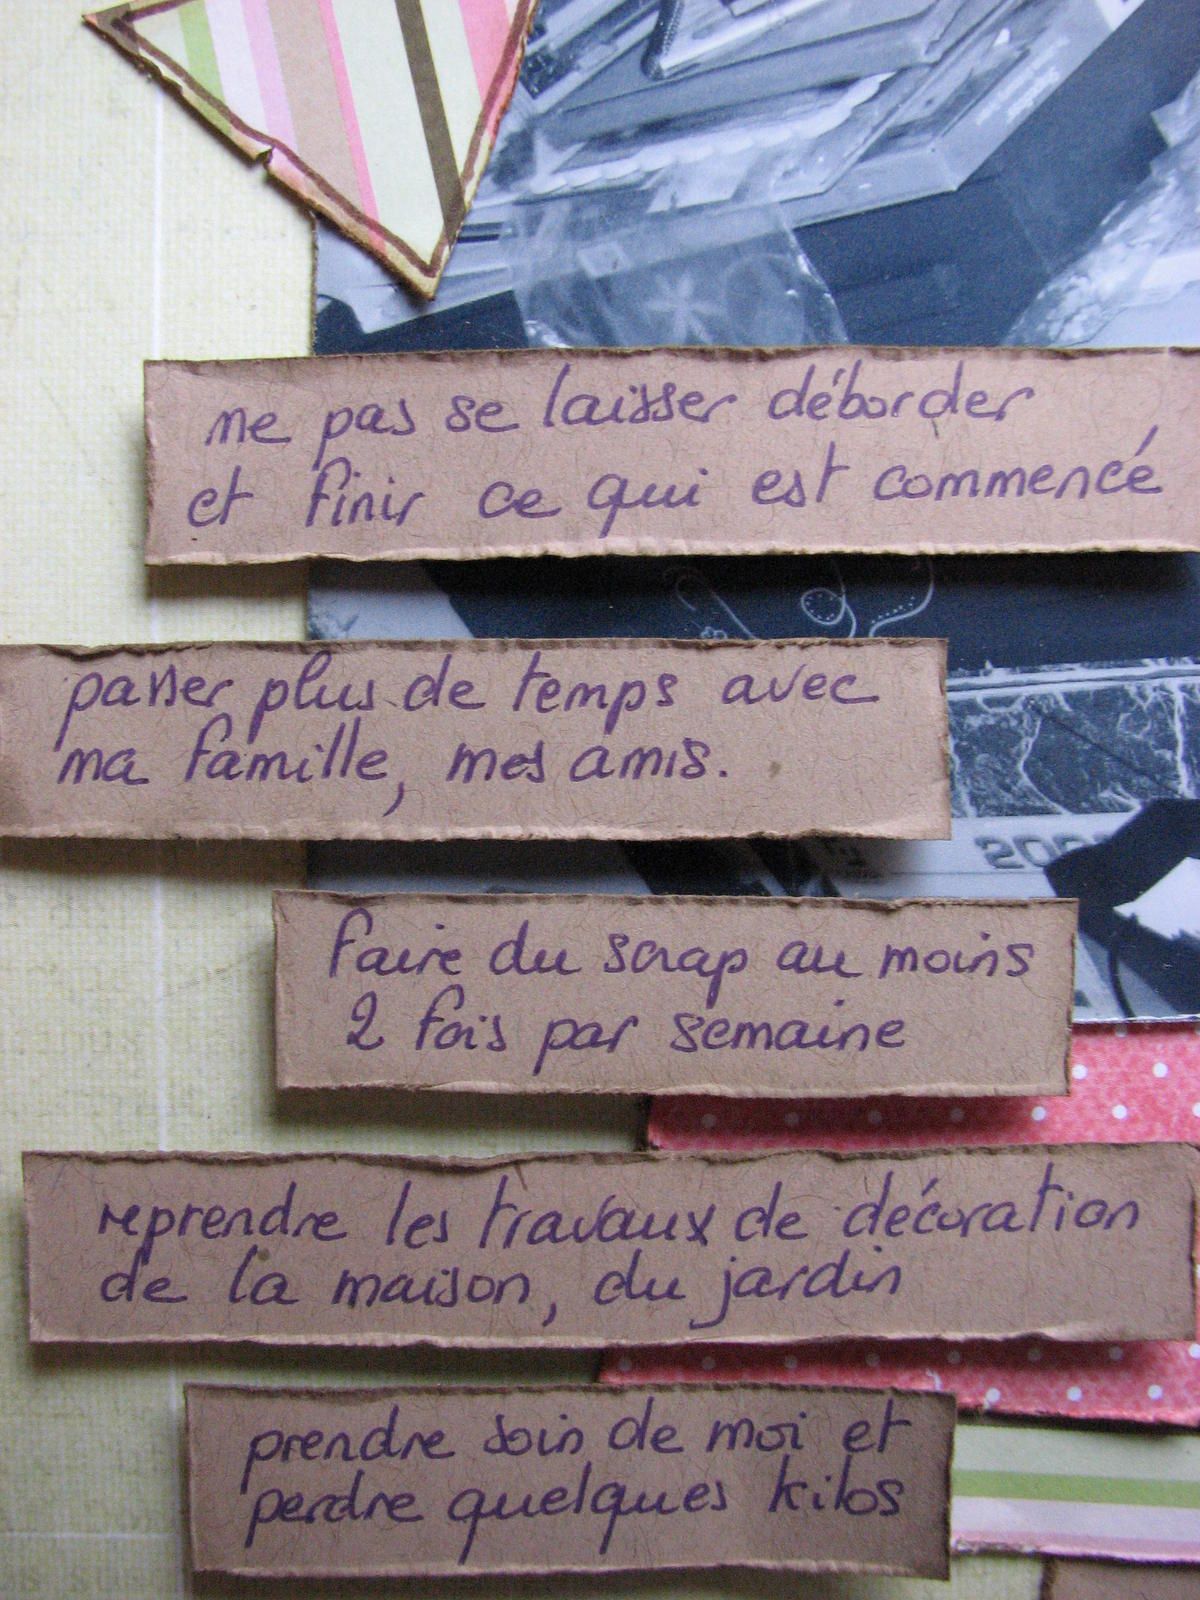 ne pas se laisser déborder
et finir ce qui est commencé
passer plus de temps avec
ma famille, mes amis.
faire du scrap au moins
2 fois par semaine
reprendre les travaux de décoration
de la maison, du jardin
prendre soin de moi et
perdre quelques kilos